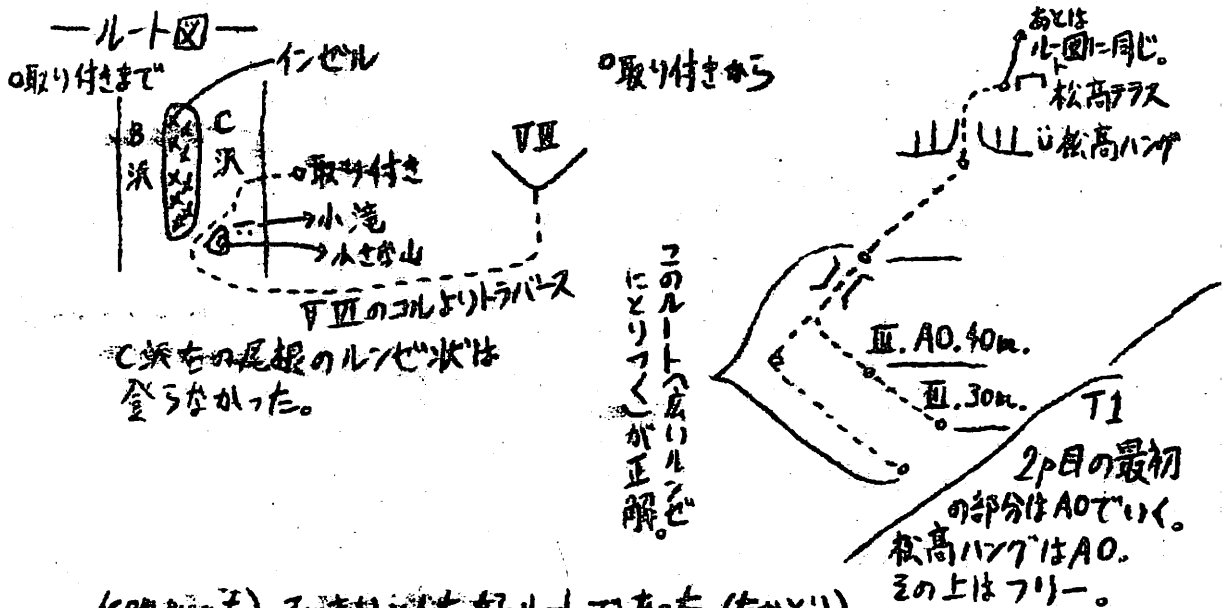 ールート図ー
○取り付きまで
インゼル
B沢
C沢
取り付き
→小滝
→小さな山
V VI
V VIのコルよりトラバース
C沢右の尾根のルンゼ状は
登らなかった。
○取り付きから
あとは
ルート図に同じ。
松高テラス
松高ハング
このルート(広いルンゼ
にとりつく)が正解。
III. A0. 40m.
III. 30m.
T1
2p目の最初
の部分はA0でいく。
松高ハングはA0.
その上はフリー。